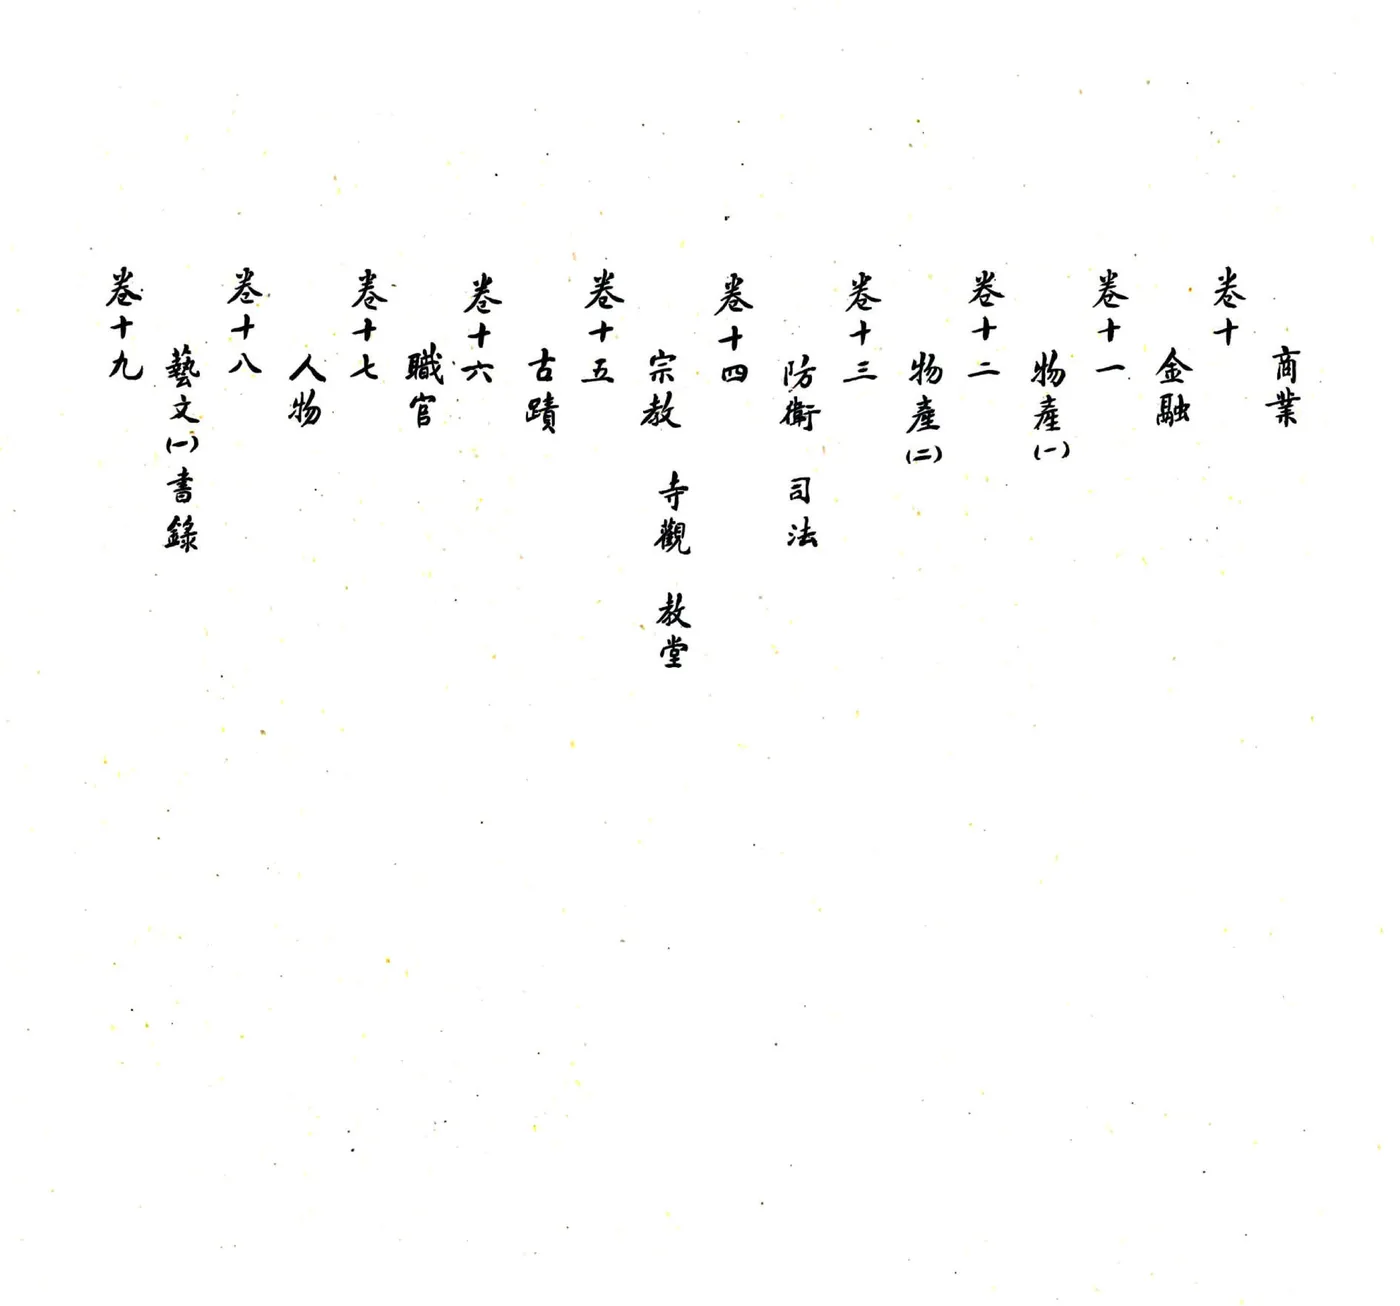 商業
卷十
金融
卷十一
物產(一)
卷十二
物產(二)
卷十三
防衛 司法
卷十四
宗教 寺觀 教堂
卷十五
古蹟
卷十六
職官
卷十七
人物
卷十八
藝文(一)書錄
卷十九